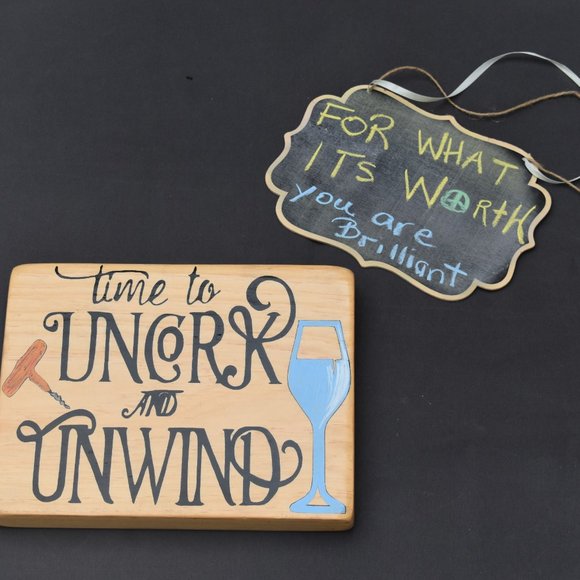 FOR WHAT
ITS WORTH
you are
Brilliant
time to
UNCORK
AND
UNWIND